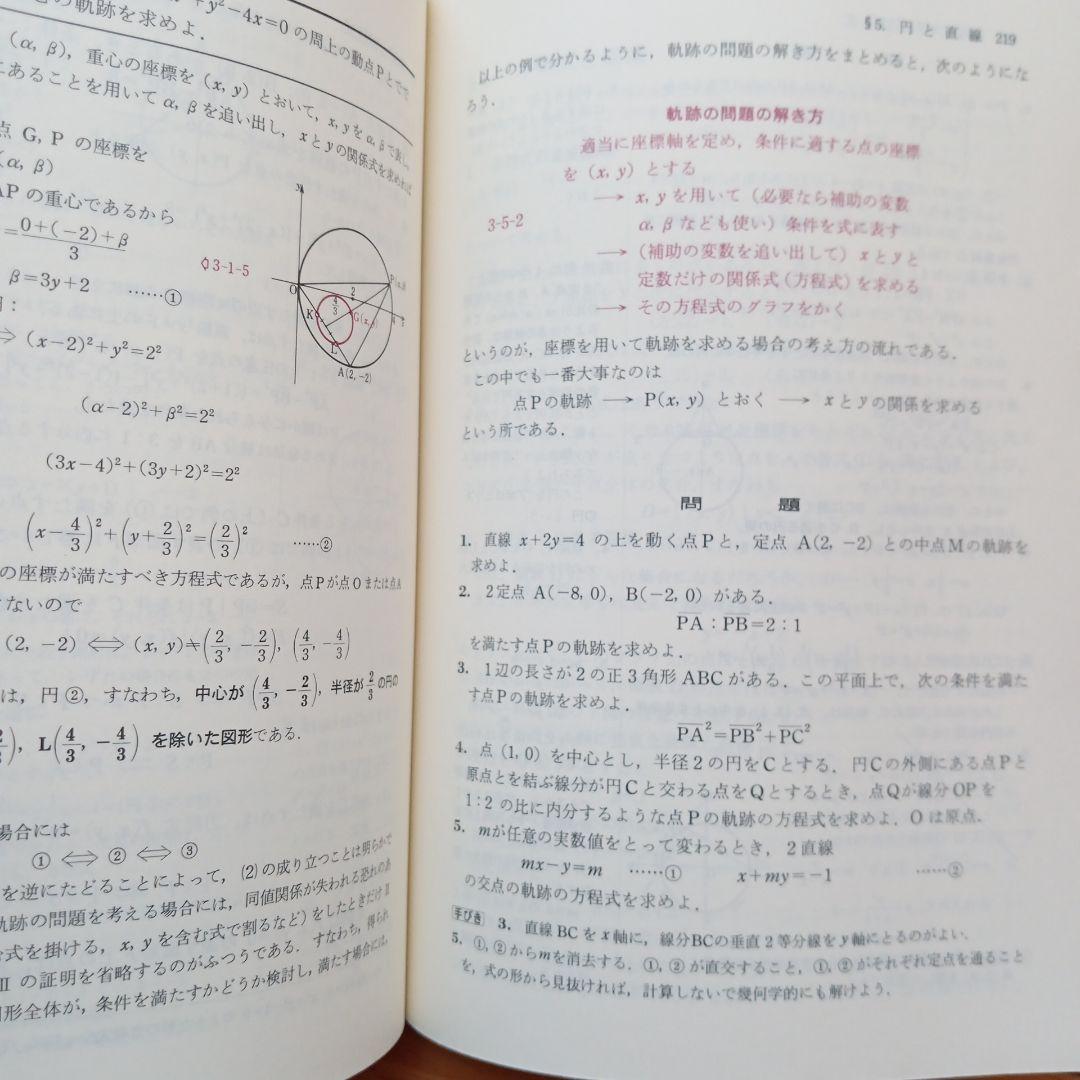 +y²−4x=0 の周上の動点Pとで
の軌跡を求めよ．
(α, β)，重心の座標を (x, y) とおいて，x, yをα, βで表し，
あることを用いて α, β を追い出し，xとyの関係式を求めれば
点 G, P の座標を
(α, β)
AP の重心であるから
=\frac{0+(−2)+β}{3}
◊3-1-5
β=3y+2 ……①
⇒ (x−2)²+y²=2²
(α−2)²+β²=2²
(3x−4)²+(3y+2)²=2²
(x−\frac{4}{3})²+(y+\frac{2}{3})²=(\frac{2}{3})² ……②
y
O
2
\frac{4}{3}
4
x
K
G(x, y)
L
A(2, −2)
の座標が満たすべき方程式であるが，点Pが点Oまたは点A
ないので
(2, −2) ⇔ (x, y)≠(\frac{2}{3}, −\frac{2}{3}), (\frac{4}{3}, −\frac{4}{3})
は，円②，すなわち，中心が (\frac{4}{3}, −\frac{2}{3})，半径が\frac{2}{3}の円の
), L(\frac{4}{3}, −\frac{4}{3}) を除いた図形である．
場合には
① ⇔ ② ⇔ ③
を逆にたどることによって，(2)の成り立つことは明らかで
軌跡の問題を考える場合には，同値関係が失われる恐れのあ
式を掛ける，x, yを含む式で割るなど）をしたときだけⅡ
Ⅱ の証明を省略するのがふつうである．すなわち，得られ
図形全体が，条件を満たすかどうか検討し，満たす場合には，
§5. 円 と 直 線 219
以上の例で分かるように，軌跡の問題の解き方をまとめると，次のようにな
ろう．
軌跡の問題の解き方
適当に座標軸を定め，条件に適する点の座標
を (x, y) とする
→ x, y を用いて（必要なら補助の変数
3-5-2
α, β なども使い）条件を式に表す
→（補助の変数を追い出して）xとyと
定数だけの関係式（方程式）を求める
→ その方程式のグラフをかく
というのが，座標を用いて軌跡を求める場合の考え方の流れである．
この中でも一番大事なのは
点Pの軌跡 → P(x, y) とおく → xとyの関係を求める
という所である．
問 題
1. 直線 x+2y=4 の上を動く点Pと，定点 A(2, −2) との中点Mの軌跡を
求めよ．
2. 2定点 A(−8, 0)，B(−2, 0) がある．
\overline{PA}：\overline{PB}=2：1
を満たす点Pの軌跡を求めよ．
3. 1辺の長さが2の正3角形 ABC がある．この平面上で，次の条件を満た
す点Pの軌跡を求めよ．
\overline{PA}²=\overline{PB}²+\overline{PC}²
4. 点 (1, 0) を中心とし，半径2の円をCとする．円Cの外側にある点Pと
原点とを結ぶ線分が円Cと交わる点をQとするとき，点Qが線分OPを
1：2 の比に内分するような点Pの軌跡の方程式を求めよ．Oは原点．
5. mが任意の実数値をとって変わるとき，2直線
mx−y=m ……① x+my=−1 ……②
の交点の軌跡の方程式を求めよ．
手びき 3. 直線BCをx軸に，線分BCの垂直2等分線をy軸にとるのがよい．
5. ①, ②からmを消去する．①, ②が直交すること，①, ②がそれぞれ定点を通ること
を，式の形から見抜ければ，計算しないで幾何学的にも解けよう．